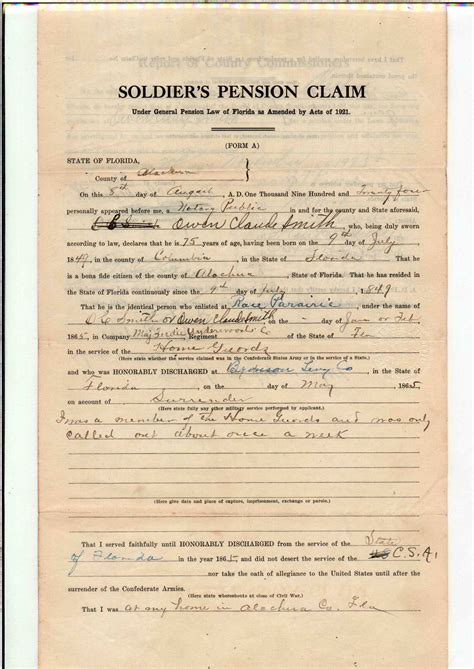 SOLDIER'S PENSION CLAIM
Under General Pension Law of Florida as Amended by Acts of 1921.
(FORM A)
STATE OF FLORIDA,
County of Alachua
On this 5th day of August A. D. One Thousand Nine Hundred and Twenty four
personally appeared before me, a Notary Public in and for the county and State aforesaid,
Owen Claude Smith who, being duly sworn
according to law, declares that he is 75 years of age, having been born on the 9th day of July
1849, in the county of Columbia, in the State of Florida That he
is a bona fide citizen of the county of Alachua, State of Florida. That he has resided in the
State of Florida continuously since the 9th day of July 1849
That he is the identical person who enlisted at under the name of
O. C. Smith or Owen Claude Smith on the - day of Jan or Feb
1865, in Company Regiment of the State of Fla
in the service of the Home Guards
(Here state whether the service claimed was in the Confederate States Army or in the service of a State.)
and who was HONORABLY DISCHARGED at Bronson Levy Co, in the State of
Florida on the day of May, 1865,
on account of Surrender
(Here state fully any other military service performed by applicant.)
I was a member of the Home Guards and was only
called out about once a week
(Here give date and place of capture, imprisonment, exchange or parole.)
That I served faithfully until HONORABLY DISCHARGED from the service of the State
of Florida in the year 1865 and did not desert the service of the C.S.A,
nor take the oath of allegiance to the United States until after the
surrender of the Confederate Armies.
(Here state whereabouts at close of Civil War.)
That I was at my home in Alachua Co. Fla